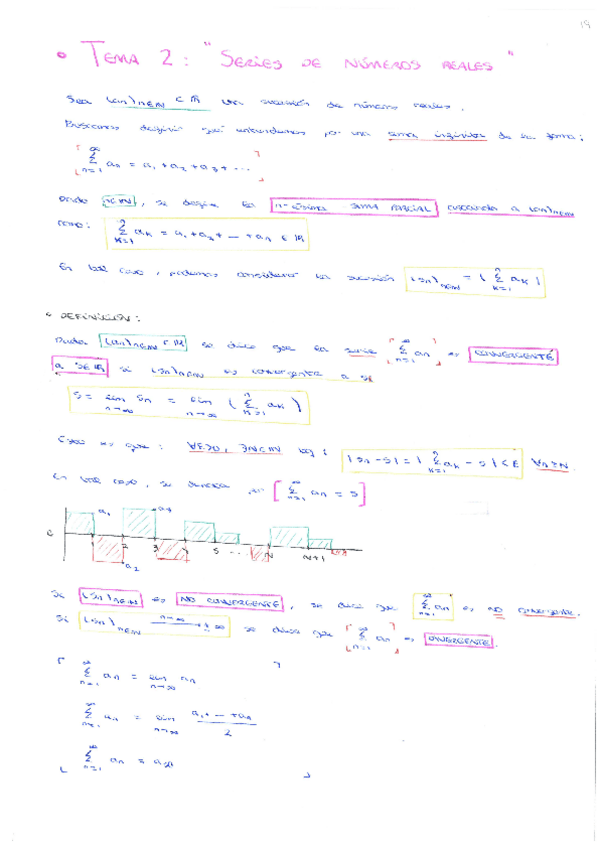 19
• TEMA 2: "SERIES DE NÚMEROS REALES"
Sea (an)n∈ℕ ⊂ ℝ una sucesión de números reales.
Buscamos definir qué entendemos por una suma infinita de la forma:
∞∑n=1 an = a1 + a2 + a3 + ...
n∈ℕ, se define la n-ésima suma parcial asociada a (an)n∈ℕ
como: n∑k=1 ak = a1 + a2 + ... + an ∈ ℝ
En tal caso, podemos considerar la sucesión (Sn)n∈ℕ = ( n∑k=1 ak )
• DEFINICIÓN:
Dada (an)n∈ℕ ⊂ ℝ se dice que la serie ∞∑n=1 an es CONVERGENTE
a S∈ℝ si (Sn)n∈ℕ es convergente a S
S = lim n→∞ Sn = lim n→∞ ( n∑k=1 ak )
Esto es que: ∀ε>0, ∃N∈ℕ tq: |Sn - S| = | n∑k=1 ak - S | < ε ∀n≥N.
En tal caso, se denota por [ ∞∑n=1 an = S ]
0 a1 a2 2 3 4 5 ... N N+1
Si (Sn)n∈ℕ es NO CONVERGENTE, se dice que ∞∑n=1 an es no convergente.
Si (Sn)n∈ℕ n→∞ → ±∞ se dice que ∞∑n=1 an es DIVERGENTE.
∞∑n=1 an = lim n→∞ an
∞∑n=1 an = lim n→∞ a1 + ... + an / 2
∞∑n=1 an = a∞